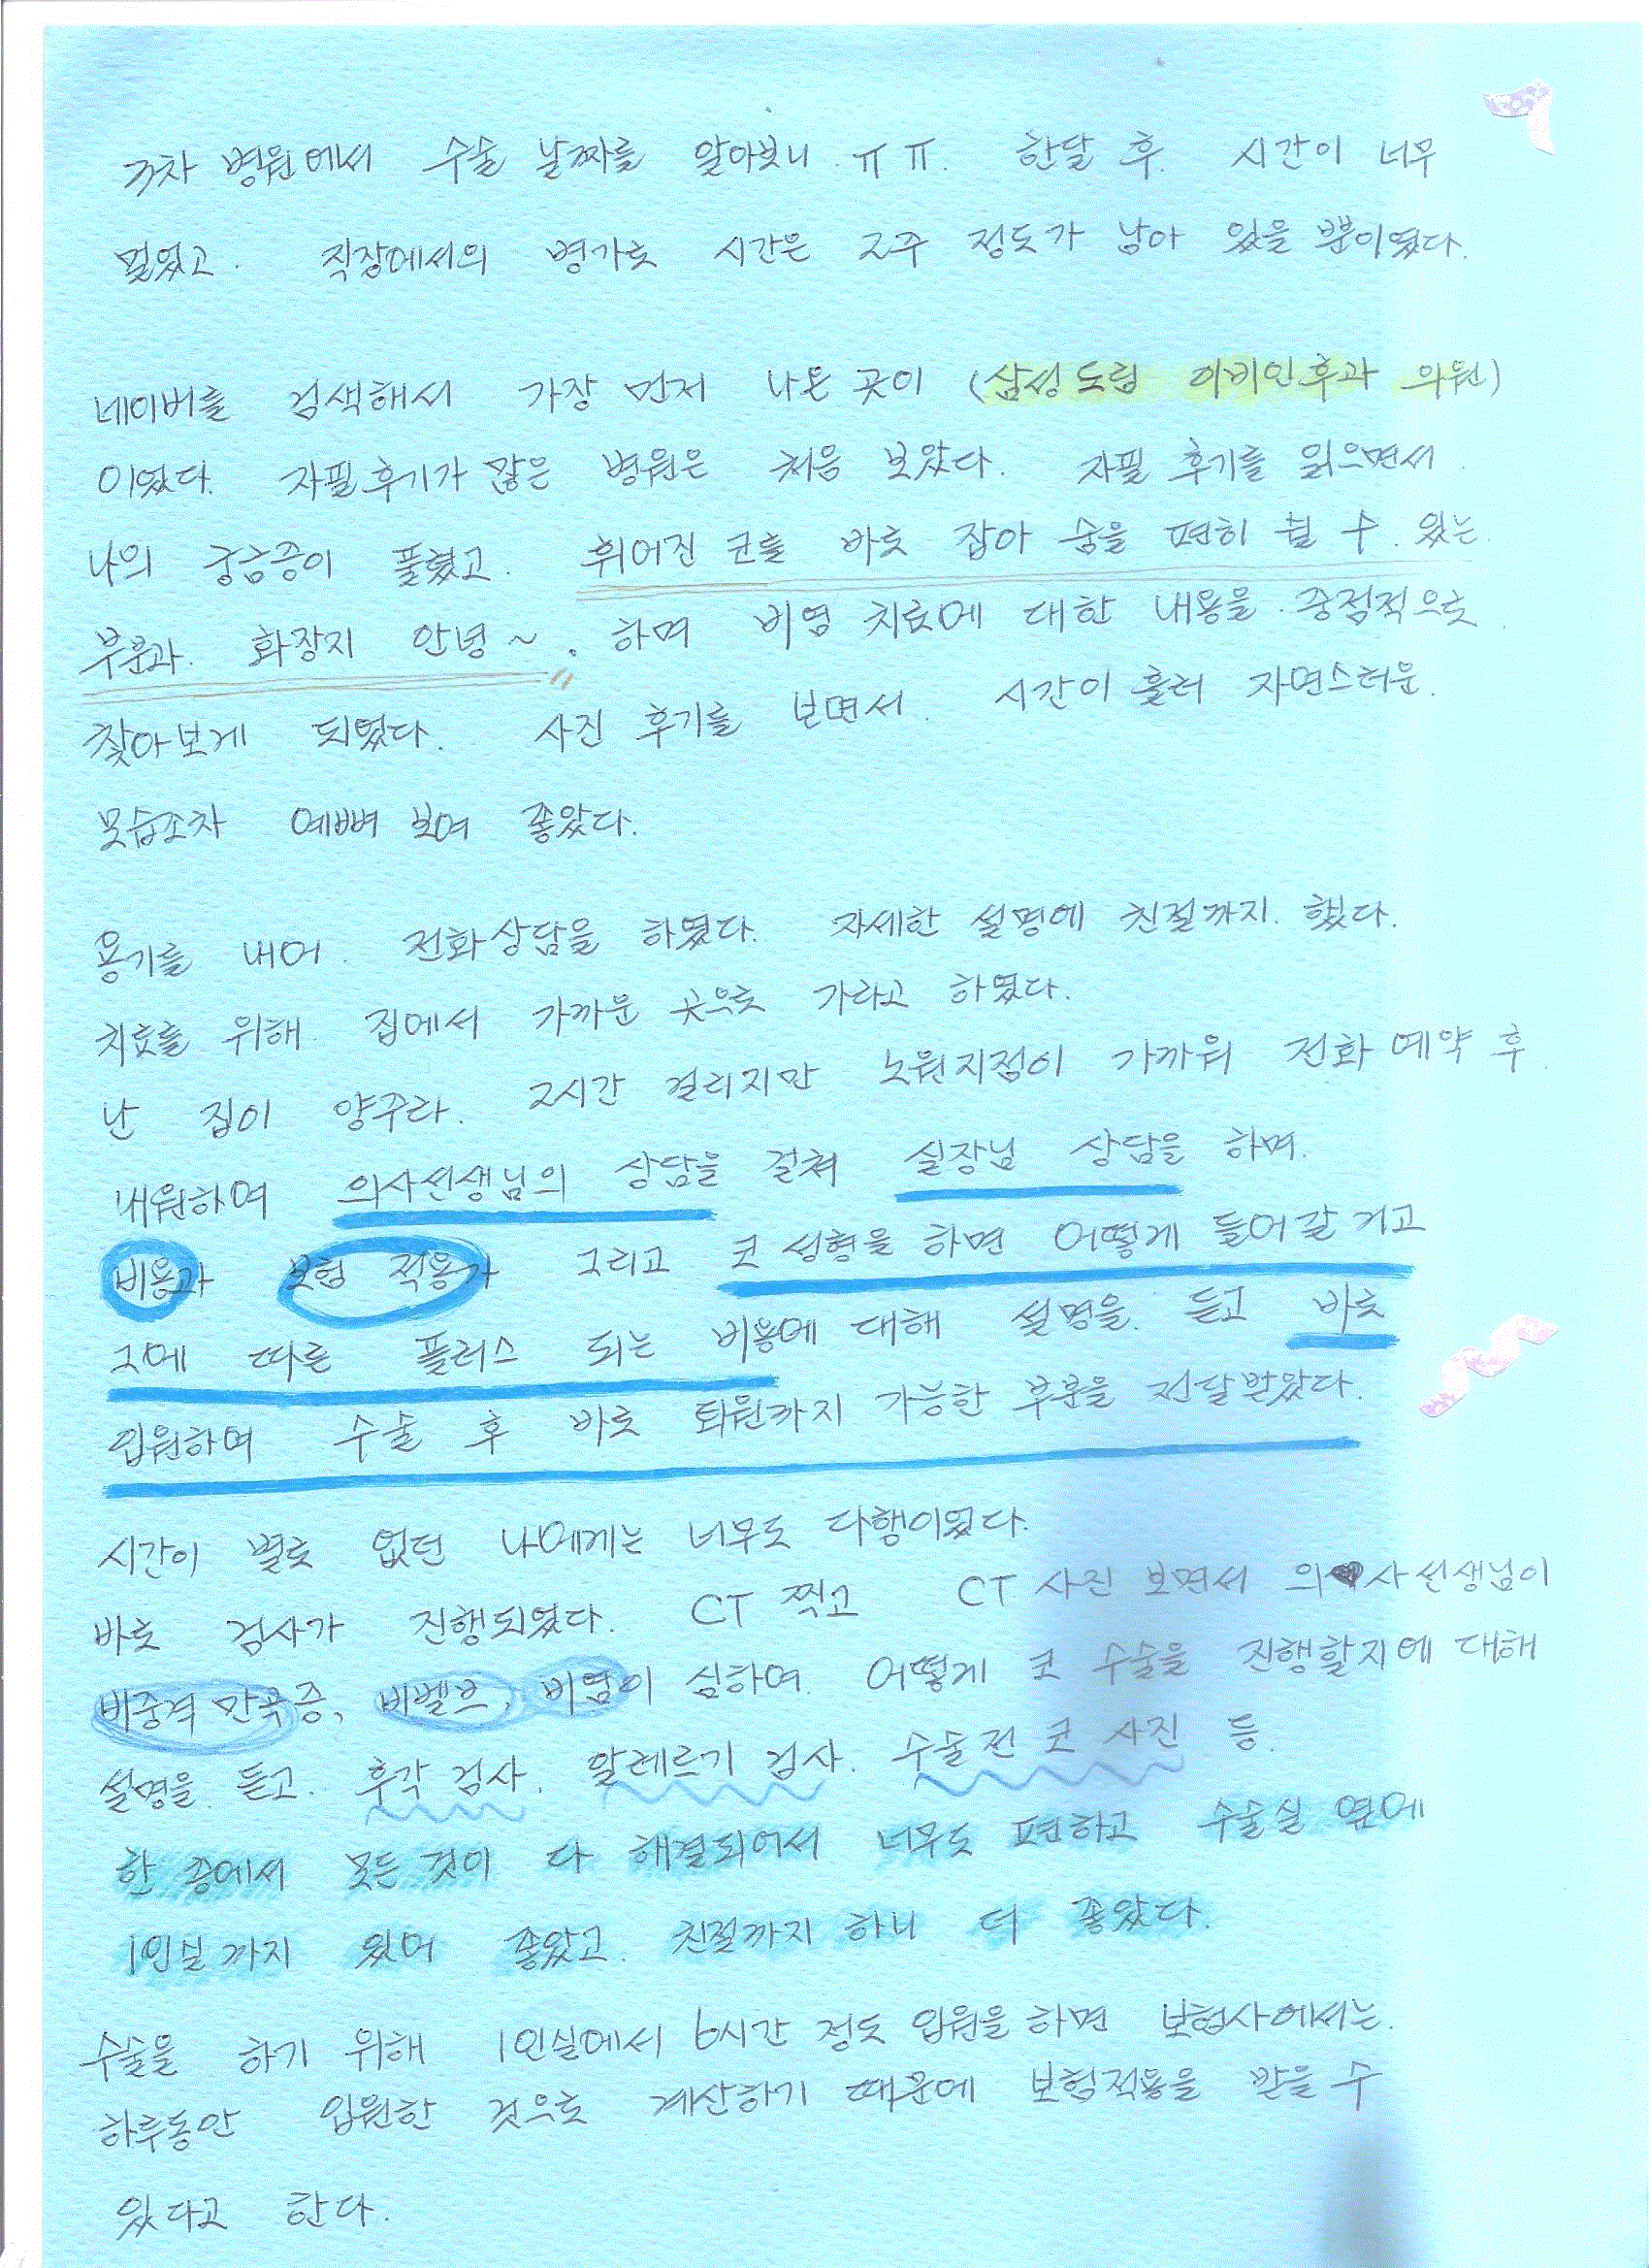 3차 병원에서 수술 날짜를 알아보니 ㅠㅠ. 한달 후. 시간이 너무
멀었고. 직장에서의 병가로 시간은 2주 정도가 남아 있을 뿐이였다.
네이버를 검색해서 가장 먼저 나온 곳이 (삼성드림 이비인후과 의원)
이였다. 자필후기가 많은 병원은 처음 보았다. 자필 후기를 읽으면서
나의 궁금증이 풀렸고. 휘어진 코를 바로 잡아 숨을 편히 쉴 수 있는
부분과. 화장지 안녕~. 하며 비염 치료에 대한 내용을 중점적으로
찾아보게 되었다. 사진 후기를 보면서. 시간이 흘러 자연스러운
모습조차 예뻐 보여 좋았다.
용기를 내어. 전화상담을 하였다. 자세한 설명에 친절까지 했다.
치료를 위해 집에서 가까운 곳으로 가라고 하였다.
난 집이 양주라. 2시간 걸리지만 노원지점이 가까워 전화 예약 후
내원하여 의사선생님의 상담을 걸쳐 실장님 상담을 하며.
비용과 보험 적용가 그리고 코 성형을 하면 어떻게 들어갈 거고
그에 따른 플러스 되는 비용에 대해 설명을 듣고 바로
입원하여 수술 후 바로 퇴원까지 가능한 부분을 전달받았다.
시간이 별로 없던 나에게는 너무도 다행이였다.
바로 검사가 진행되었다. CT 찍고 CT 사진 보면서 의사선생님이
비중격 만곡증, 비벨브, 비염이 심하여. 어떻게 코 수술을 진행할지에 대해
설명을 듣고. 후각 검사. 알레르기 검사. 수술전 코 사진 등.
한 층에서 모든 것이 다 해결되어서 너무도 편하고 수술실 옆에
1인실까지 있어 좋았고 친절까지 하니 더 좋았다.
수술을 하기 위해 1인실에서 6시간 정도 입원을 하면 보험사에서는.
하루동안 입원한 것으로 계산하기 때문에 보험적용을 받을 수
있다고 한다.